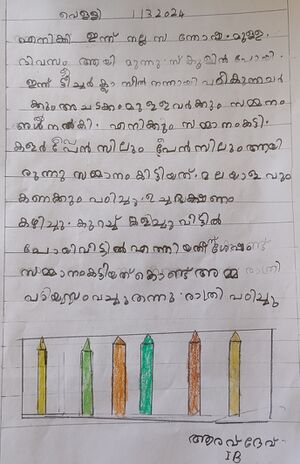 വെള്ളി 1/3.2024
എനിക്ക് ഇന്ന് നല്ല സന്തോഷമുള്ള.
ദിവസം ആയിരുന്നു. സ്കൂളിൽ പോയി.
ഇന്ന് ടീച്ചർ ക്ലാസിൽ നന്നായി പഠികുന്നവർ
ക്കും അച്ചടക്കം മുള്ളവർക്കും സമ്മാനം
ങൾ നൽകി. എനിക്കും സമ്മാനംകിട്ടി.
കളർ പെൻസിലും പെൻസിലും ആയി
രുന്നു സമ്മാനം കിട്ടിയത്. മലയാളവും
കണക്കും പഠിച്ചു. ഉച്ചഭക്ഷണം
കഴിച്ചു. കുറച്ച് കളിച്ചു വീട്ടിൽ
പോയി വീട്ടിൽ എത്തിയതിന് ശേഷം
സമ്മാനംകിട്ടിയത് കൊണ്ട് അമ്മ രാത്രി
പായസം വച്ചുതന്നു. രാത്രി പഠിച്ചു
ആരവ്ദേവ്
IB